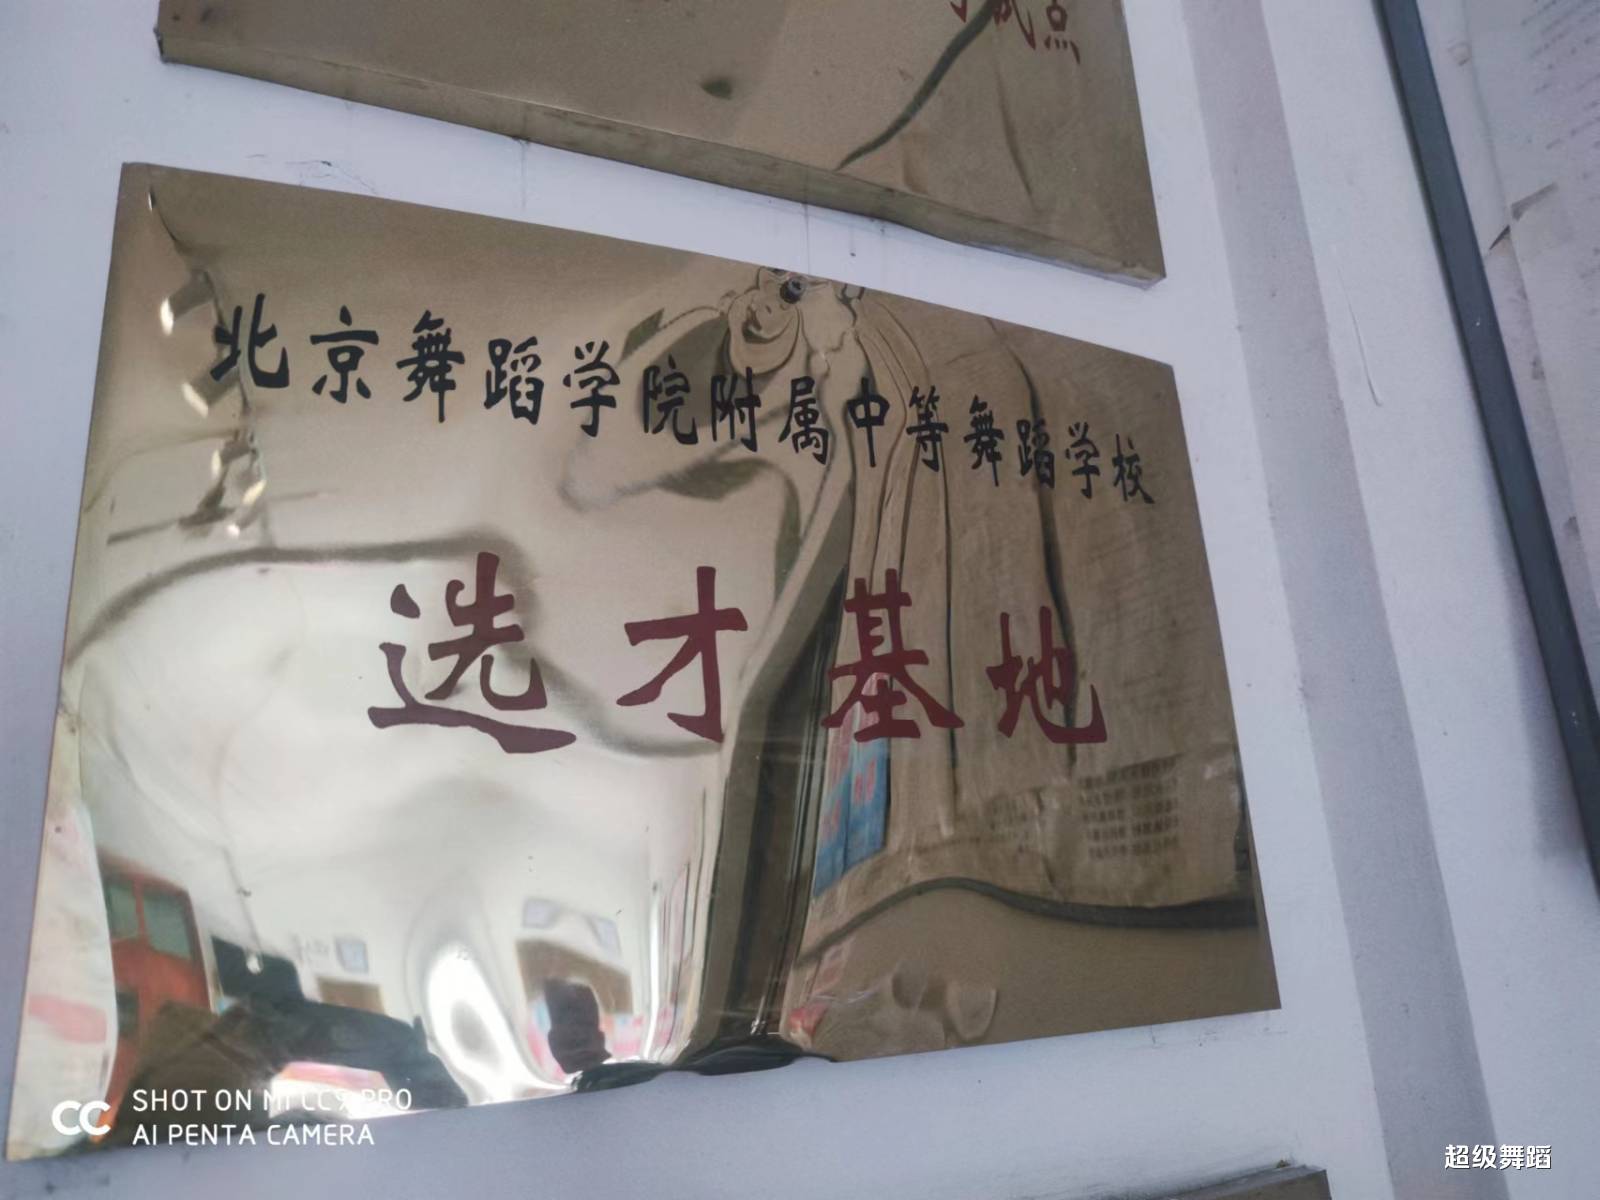 试点
北京舞蹈学院附属中等舞蹈学校
选才基地
SHOT ON MI CC9 PRO
AI PENTA CAMERA
超级舞蹈